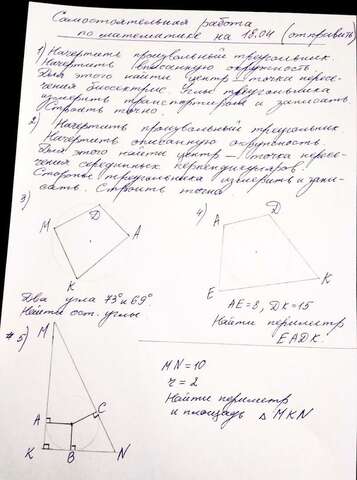 Самостоятельная работа
по математике на 18.04 (отправить)
1) Начертить произвольный треугольник.
Начертить вписанную окружность.
Для этого найти центр — точка пересе-
чения биссектрис. Углы треугольника
измерить транспортиром и записать.
Строить точно.
2) Начертить произвольный треугольник.
Начертить описанную окружность.
Для этого найти центр — точка пересе-
чения серединных перпендикуляров.
Стороны треугольника измерить и запи-
сать. Строить точно.
3)
M
D
A
K
Два угла 73° и 69°
Найти ост. углы.
4)
A
D
E
K
AE=8, DK=15
Найти периметр
EADK.
#5)
M
A
C
K
B
N
MN=10
r=2
Найти периметр
и площадь △ MKN